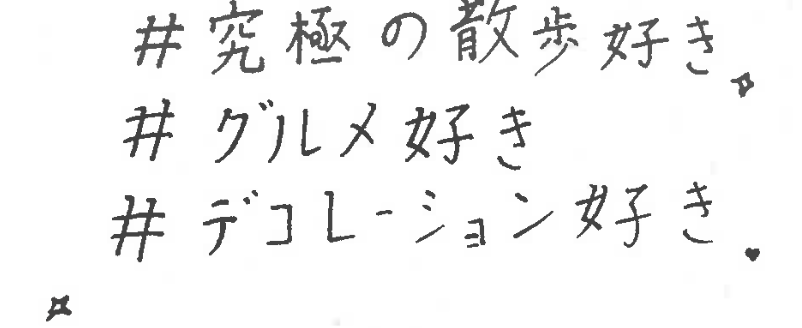 # 究極の散歩好き
# グルメ好き
# デコレーション好き